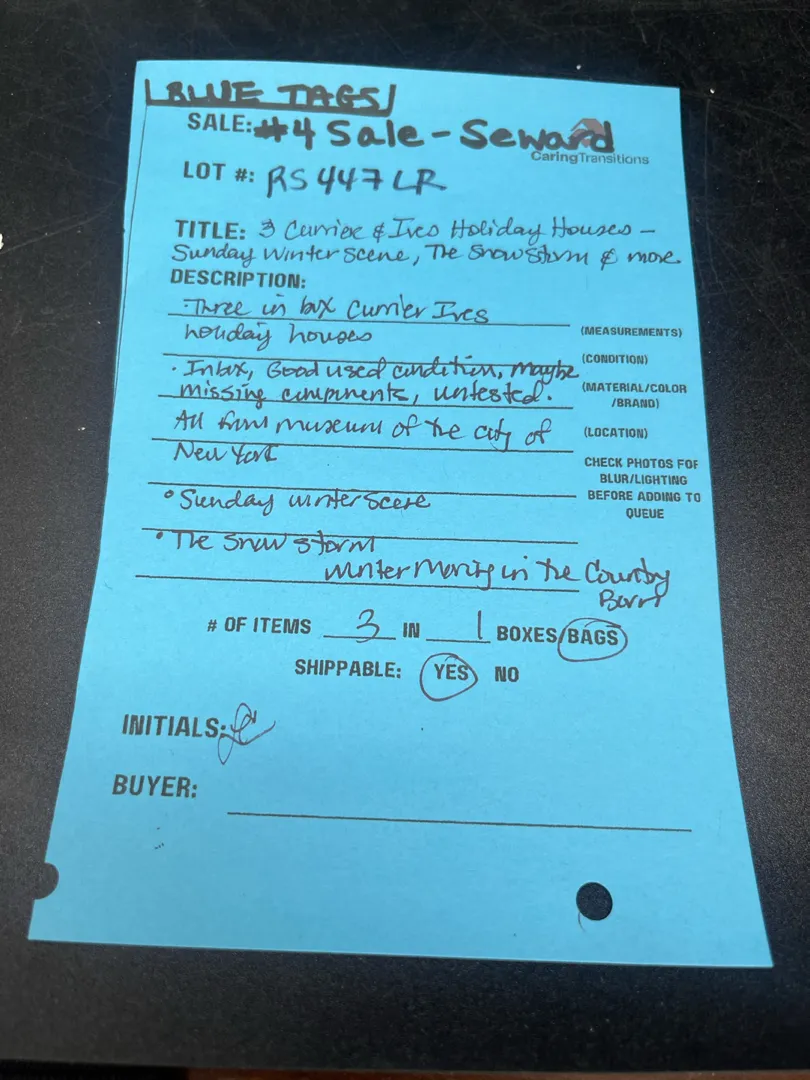 BLUE TAGS
SALE: #4 Sale - Seward
CaringTransitions
LOT #: RS447LR
TITLE: 3 Currier & Ives Holiday Houses -
Sunday Winter Scene, The Snow Storm & more
DESCRIPTION:
· Three in box Currier Ives
holiday houses
(MEASUREMENTS)
(CONDITION)
· Inbox, Good used condition, maybe
missing components, untested.
(MATERIAL/COLOR
/BRAND)
All from museum of the city of
New York
(LOCATION)
CHECK PHOTOS FOR
BLUR/LIGHTING
BEFORE ADDING TO
QUEUE
• Sunday winter scene
• The Snow storm
winter in the Country
# OF ITEMS 3 IN 1 BOXES/BAGS
SHIPPABLE: YES NO
INITIALS:
BUYER: